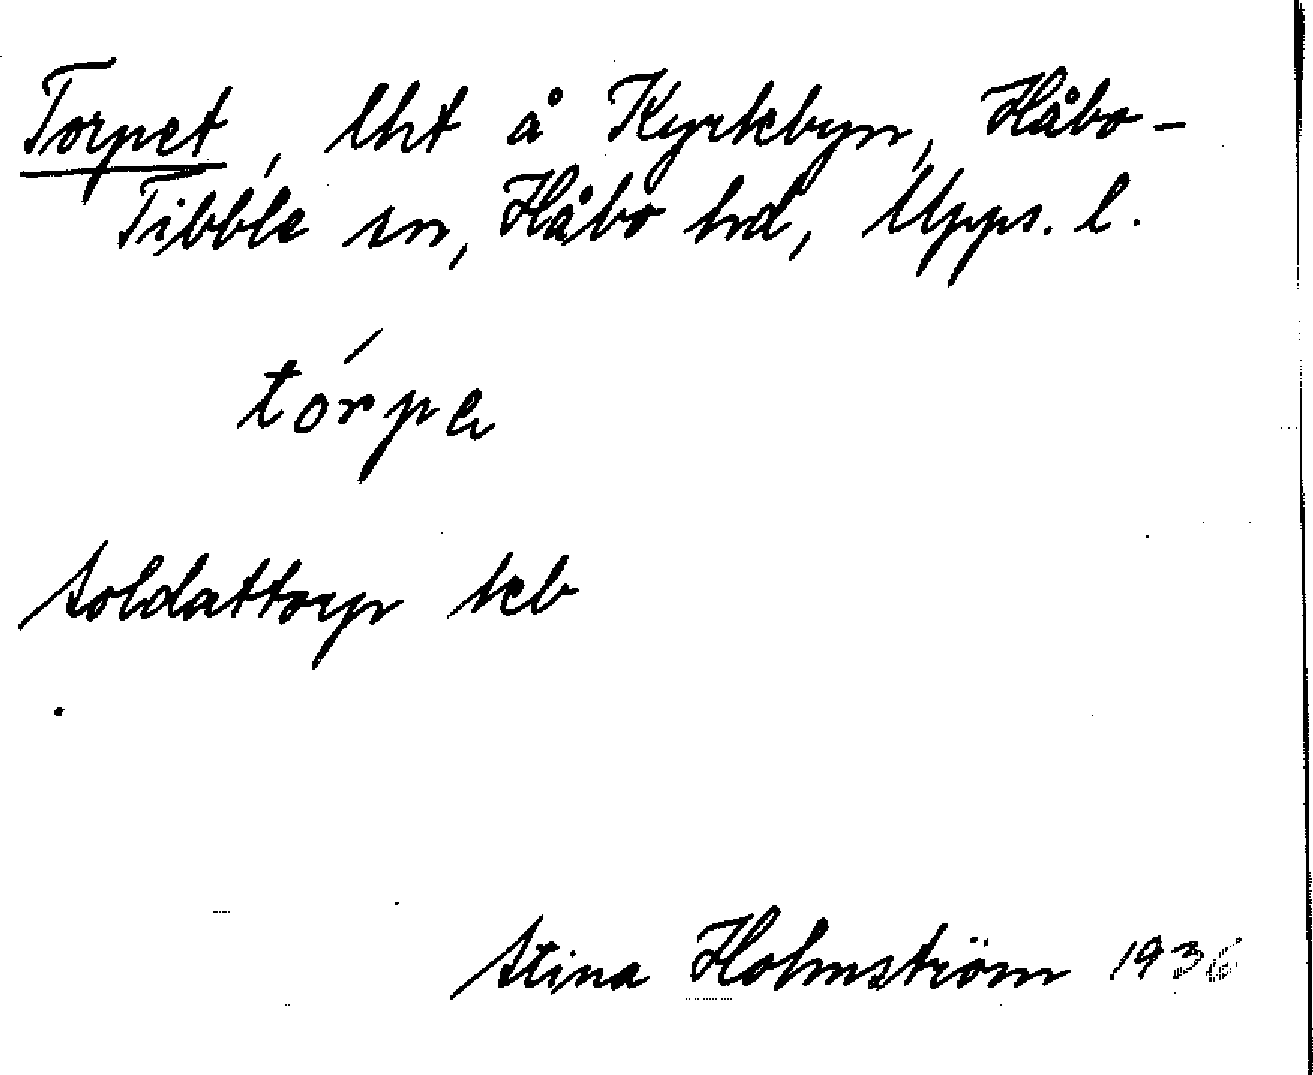 Torpet, lht å Kyrkbyn, Håbo-
Tibble sn, Håbo hd, Upps. l.
tórpa
soldattorp
Stina Holmström 1936